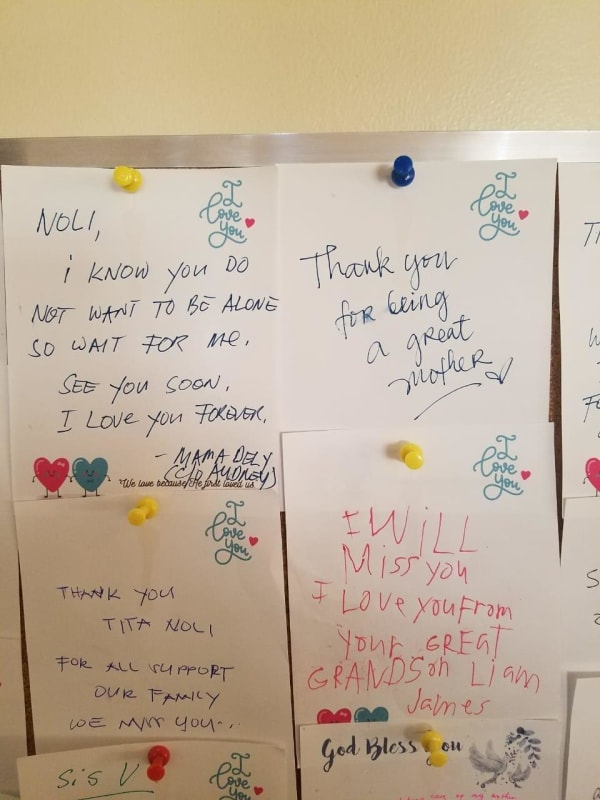 NOLI,
i KNOW YOU DO
NOT WANT TO BE ALONE
SO WAIT FOR ME.
SEE YOU SOON.
I LOVE YOU FOREVER.
- MAMA DELY
(C/O AUDREY)
We love because He first loved us
I
love
You
Thank you
for being
a great
mother
I
love
You
THANK YOU
TITA NOLI
FOR ALL SUPPORT
OUR FAMILY
WE MISS YOU...
I
love
You
I WiLL
Miss you
I LOVE YOU FROM
YOUR GREAT
GRANDSON Liam
James
I
love
You
Sis V
I
love
You
God Bless You